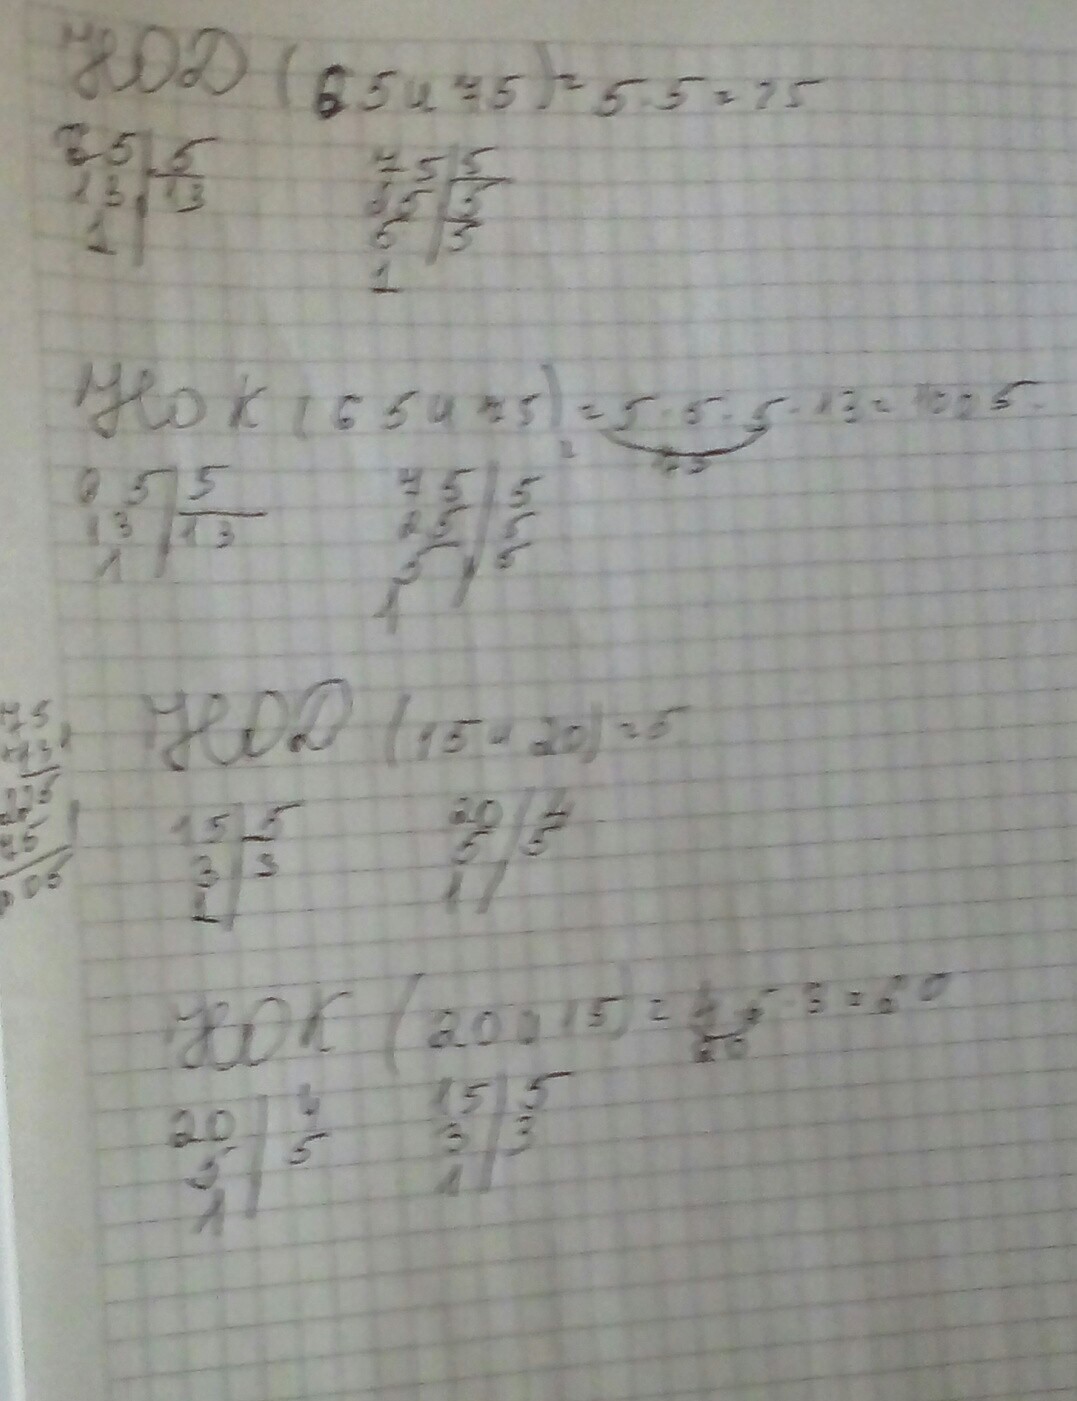 НОД (65 и 75) = 5·5=25
65|5 75|5
13|13 25|5
1 5|5
1
НОК (65 и 75) = 5·5·5·13=
75
65|5 75|5
13|13 25|5
1 5|5
1
НОД (15 и 20) =5
15|5 20|4
3|3 5|5
1 1
НОК (20 и 15) = 4·5·3=60
20
20|4 15|5
5|5 3|3
1 1
75